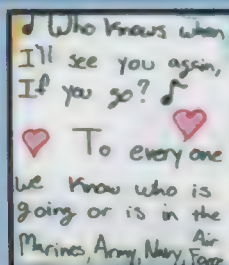 ♪ Who knows when
I'll see you again,
If you go? ♪
To every one
we know who is
going or is in the
Marines, Army, Navy, Air
Force